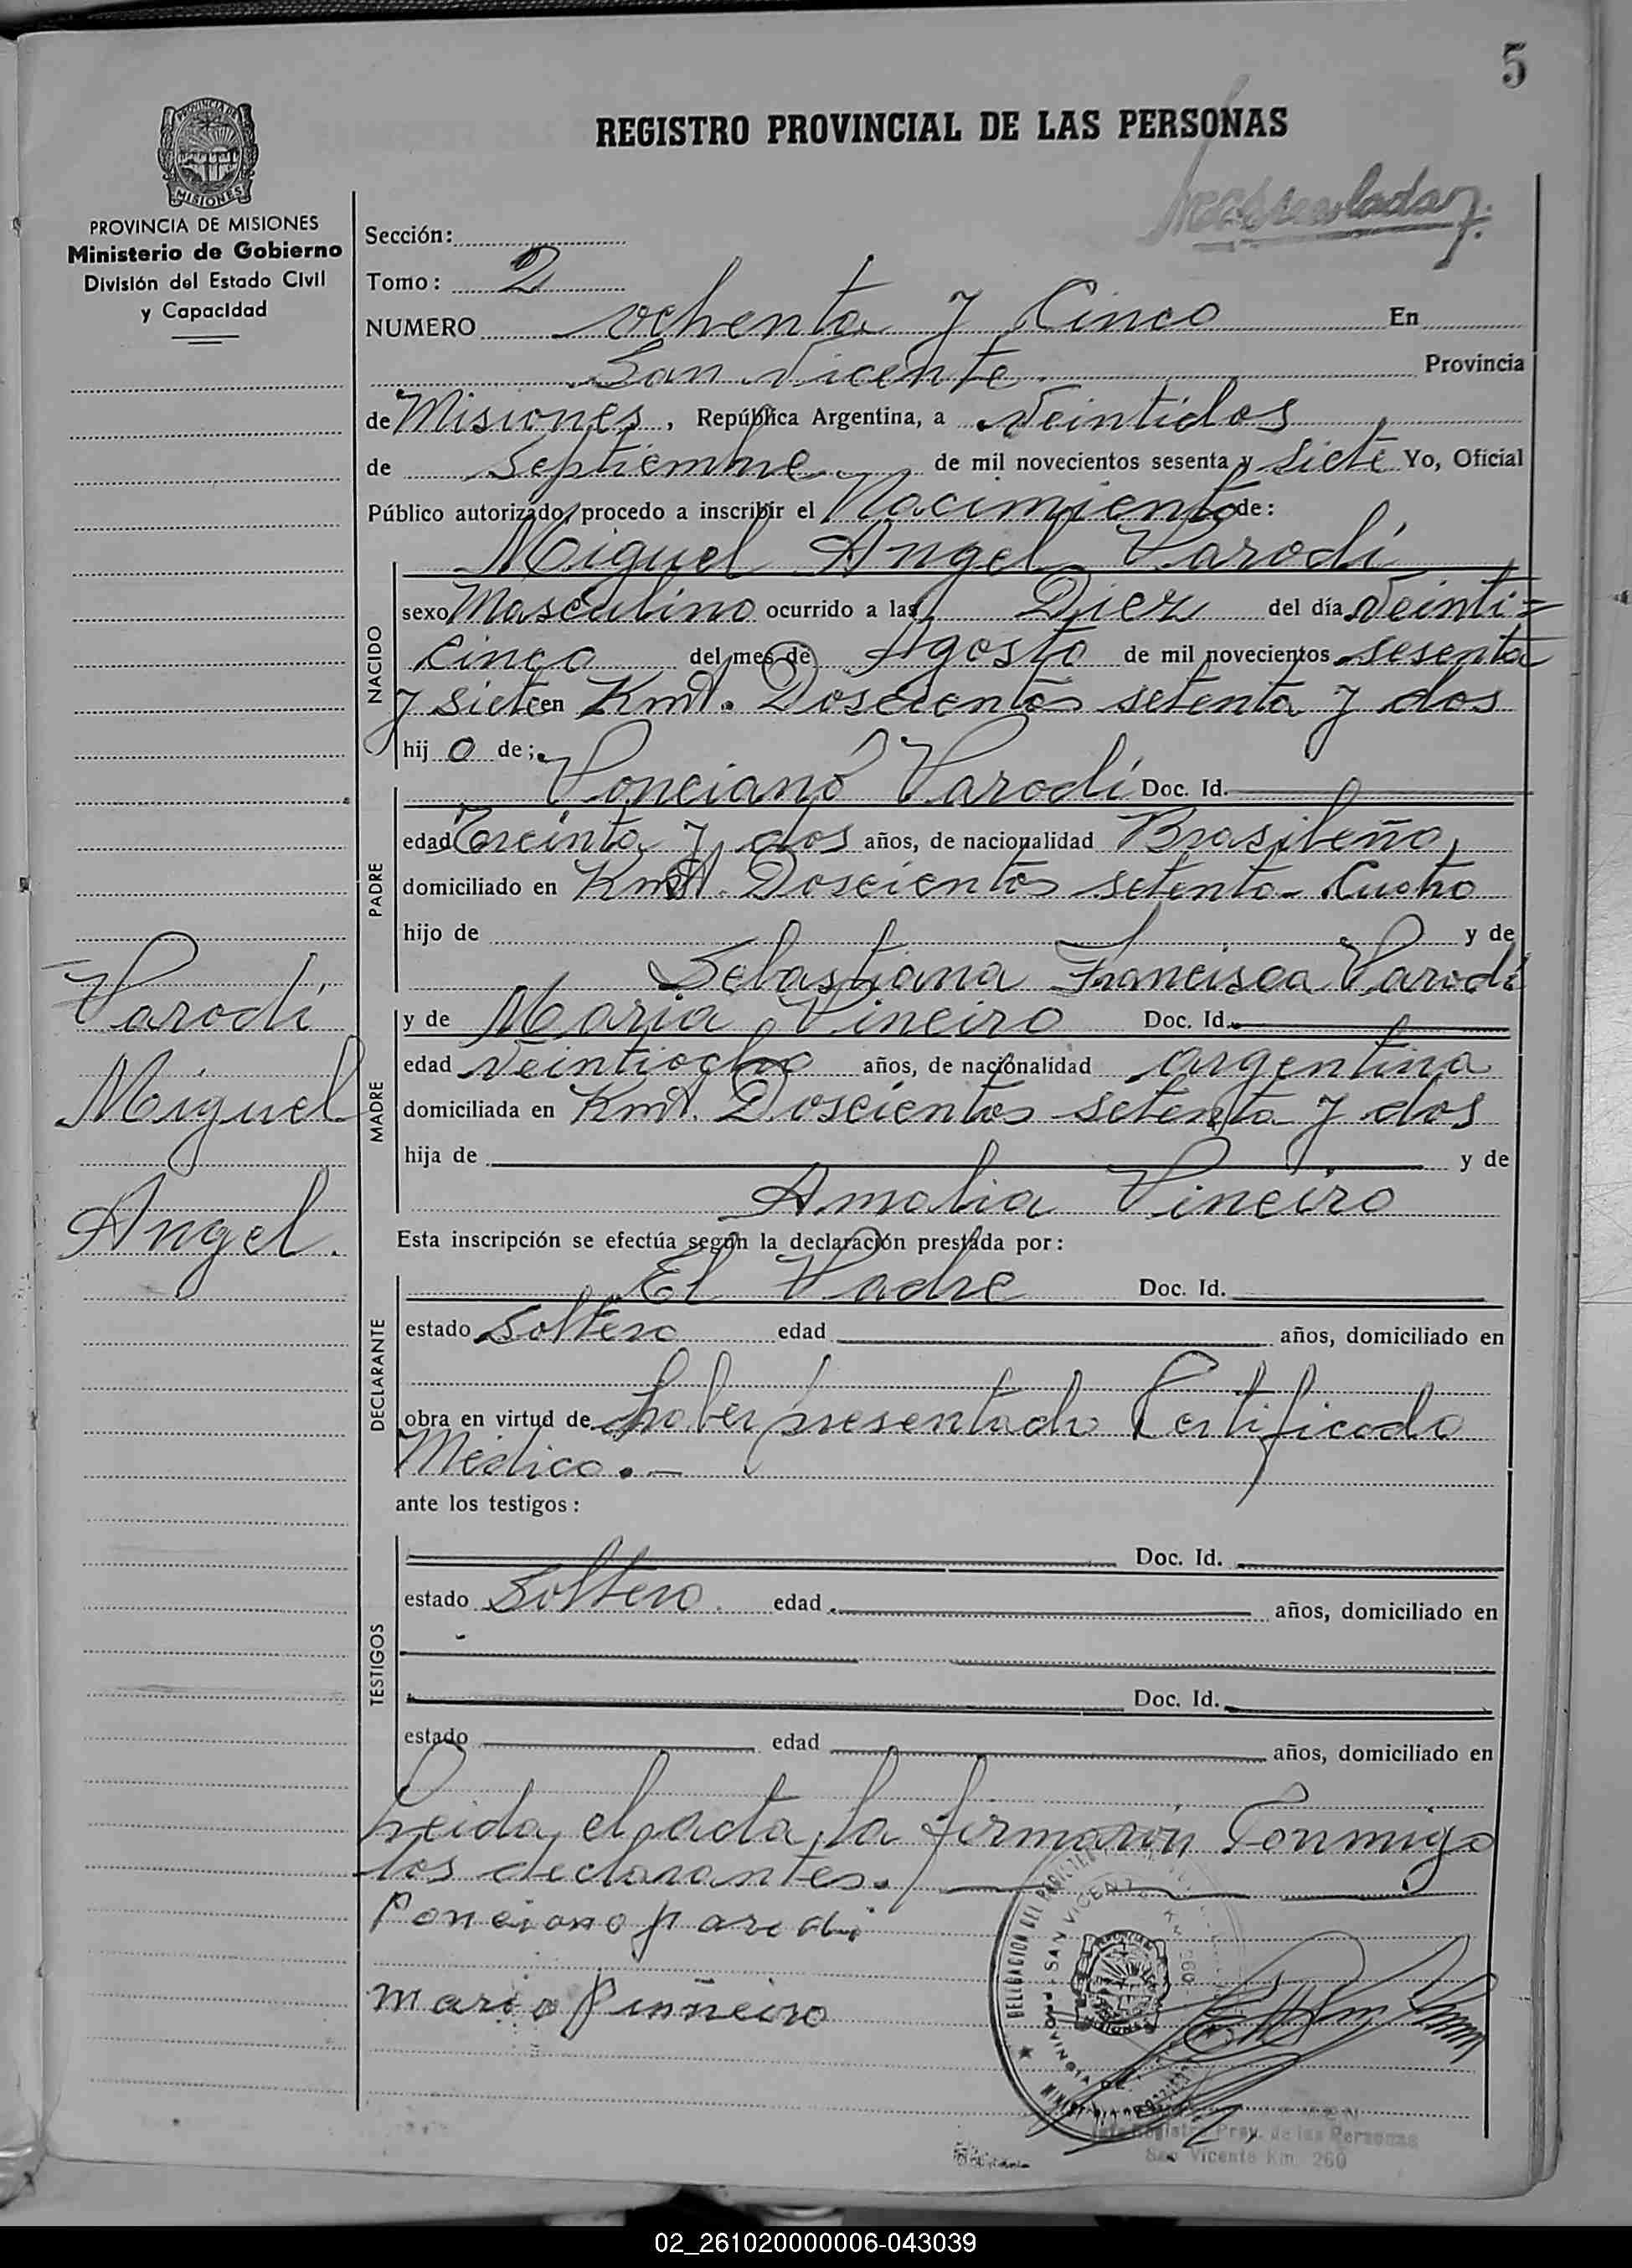 5
REGISTRO PROVINCIAL DE LAS PERSONAS
PROVINCIA DE MISIONES
Ministerio de Gobierno
División del Estado Civil
y Capacidad
MISIONES
Sección:
Tomo: 2
NUMERO ochenta y Cinco En
San Vicente Provincia
de Misiones, República Argentina, a Veintidos
de Septiembre de mil novecientos sesenta y siete Yo, Oficial
Público autorizado, procedo a inscribir el Nacimiento de:
Miguel Angel Parodí
NACIDO
sexo Masculino ocurrido a las Diez del día Veinti=
cinco del mes de Agosto de mil novecientos sesenta
y siete en Kmt. Doscientos setenta y dos
hijo de;
Ponciano Parodí Doc. Id.
PADRE
edad Treinta y dos años, de nacionalidad Brasileña,
domiciliado en Kmt. Doscientos setenta
hijo de y de
Sebastiana Francisca Parodí
MADRE
y de Maria Pineiro Doc. Id.
edad Veintiocho años, de nacionalidad argentina
domiciliada en Kmt. Doscientos setenta y dos
hija de y de
Amalia Pineiro
Parodí
Miguel
Angel.
Esta inscripción se efectúa según la declaración prestada por:
DECLARANTE
El Padre Doc. Id.
estado Soltero edad años, domiciliado en
obra en virtud de haber presentado Certificado
Médico.-
ante los testigos:
TESTIGOS
Doc. Id.
estado Soltero. edad años, domiciliado en
Doc. Id.
estado edad años, domiciliado en
Leida el acta, la firmaron Conmigo
los declarantes.
Ponciano parodi
maria Piñneiro
DELEGACION DEL
SAN VICENTE KM 260
PROVINCIA DE
MISIONES
Registro Prov. de las Personas
San Vicente Km. 260
02_261020000006-043039